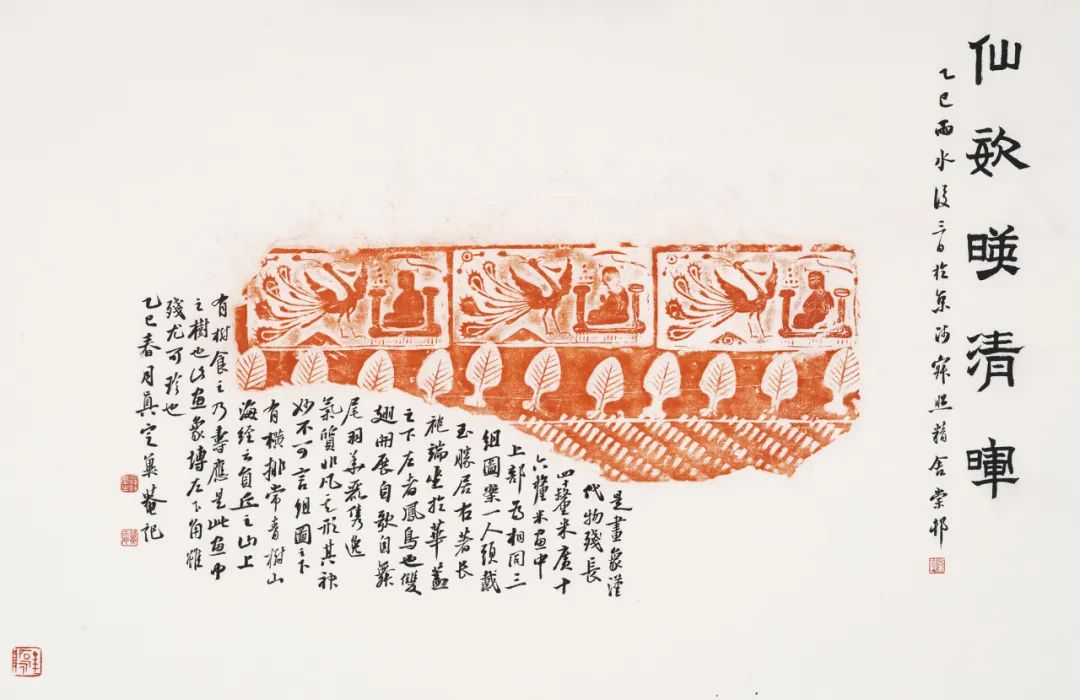 仙暎清暉
乙巳雨水後三日於京寂照精舍棠邨
是畫象漢
代物殘長
四十釐米廣十
六釐米畫中
上部為相同三
組圖案一人頭戴
玉勝居右著長
袍端坐於華蓋
之下左者鳳鳥也雙
翅開展自歌自舞
尾羽華麗雋逸
氣質非凡之形其神
妙不可言組圖之下
有橫排常青樹山
海經云員丘之山上
有樹食之乃壽應是此畫中
之樹也此畫象塼左下角雖
殘尤可珍也
乙巳春月真定菴記